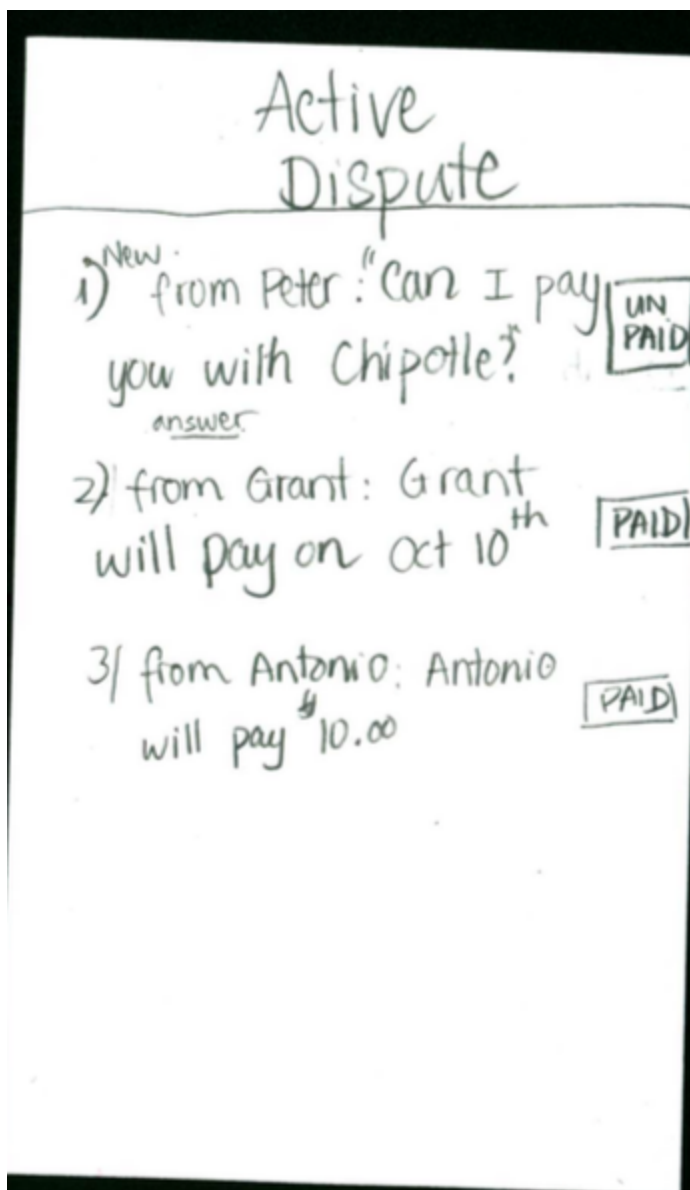 Active
Dispute
New.
1) from Peter: "Can I pay
UN
PAID
you with Chipotle?"
answer
2) from Grant: Grant
will pay on Oct 10th
PAID
3) from Antonio: Antonio
will pay $10.00
PAID